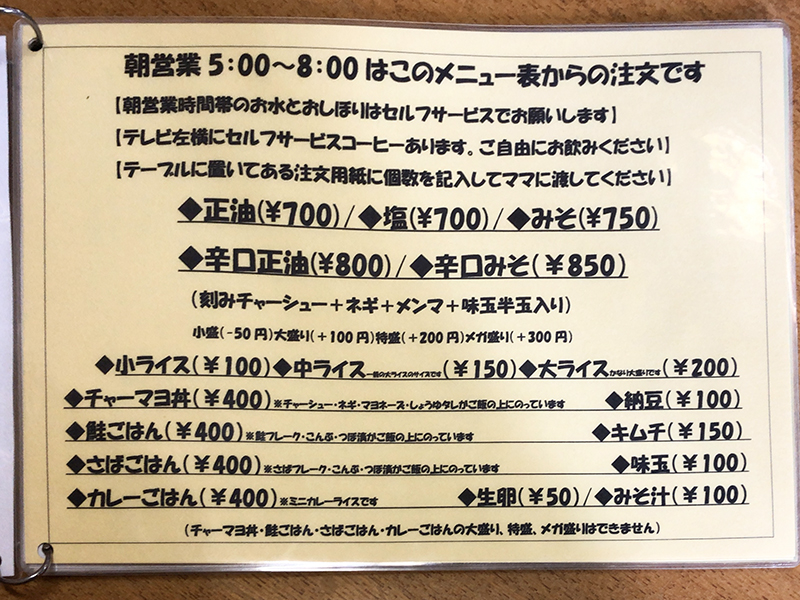 朝営業 5:00～8:00 はこのメニュー表からの注文です
【朝営業時間帯のお水とおしぼりはセルフサービスでお願いします】
【テレビ左横にセルフサービスコーヒーあります。ご自由にお飲みください】
【テーブルに置いてある注文用紙に個数を記入してママに渡してください】
◆正油(¥700)/◆塩(¥700)/◆みそ(¥750)
◆辛口正油(¥800)/◆辛口みそ(¥850)
(刻みチャーシュー+ネギ+メンマ+味玉半玉入り)
小盛(-50円)大盛り(+100円)特盛(+200円)メガ盛り(+300円)
◆小ライス(¥100)◆中ライス一般の大ライスのサイズです(¥150)◆大ライスかなり大盛りです(¥200)
◆チャーマヨ丼(¥400)※チャーシュー・ネギ・マヨネーズ・しょうゆタレがご飯の上にのっています ◆納豆(¥100)
◆鮭ごはん(¥400)※鮭フレーク・こんぶ・つぼ漬がご飯の上にのっています ◆キムチ(¥150)
◆さばごはん(¥400)※さばフレーク・こんぶ・つぼ漬がご飯の上にのっています ◆味玉(¥100)
◆カレーごはん(¥400)※ミニカレーライスです ◆生卵(¥50)/◆みそ汁(¥100)
(チャーマヨ丼・鮭ごはん・さばごはん・カレーごはんの大盛り、特盛、メガ盛りはできません)